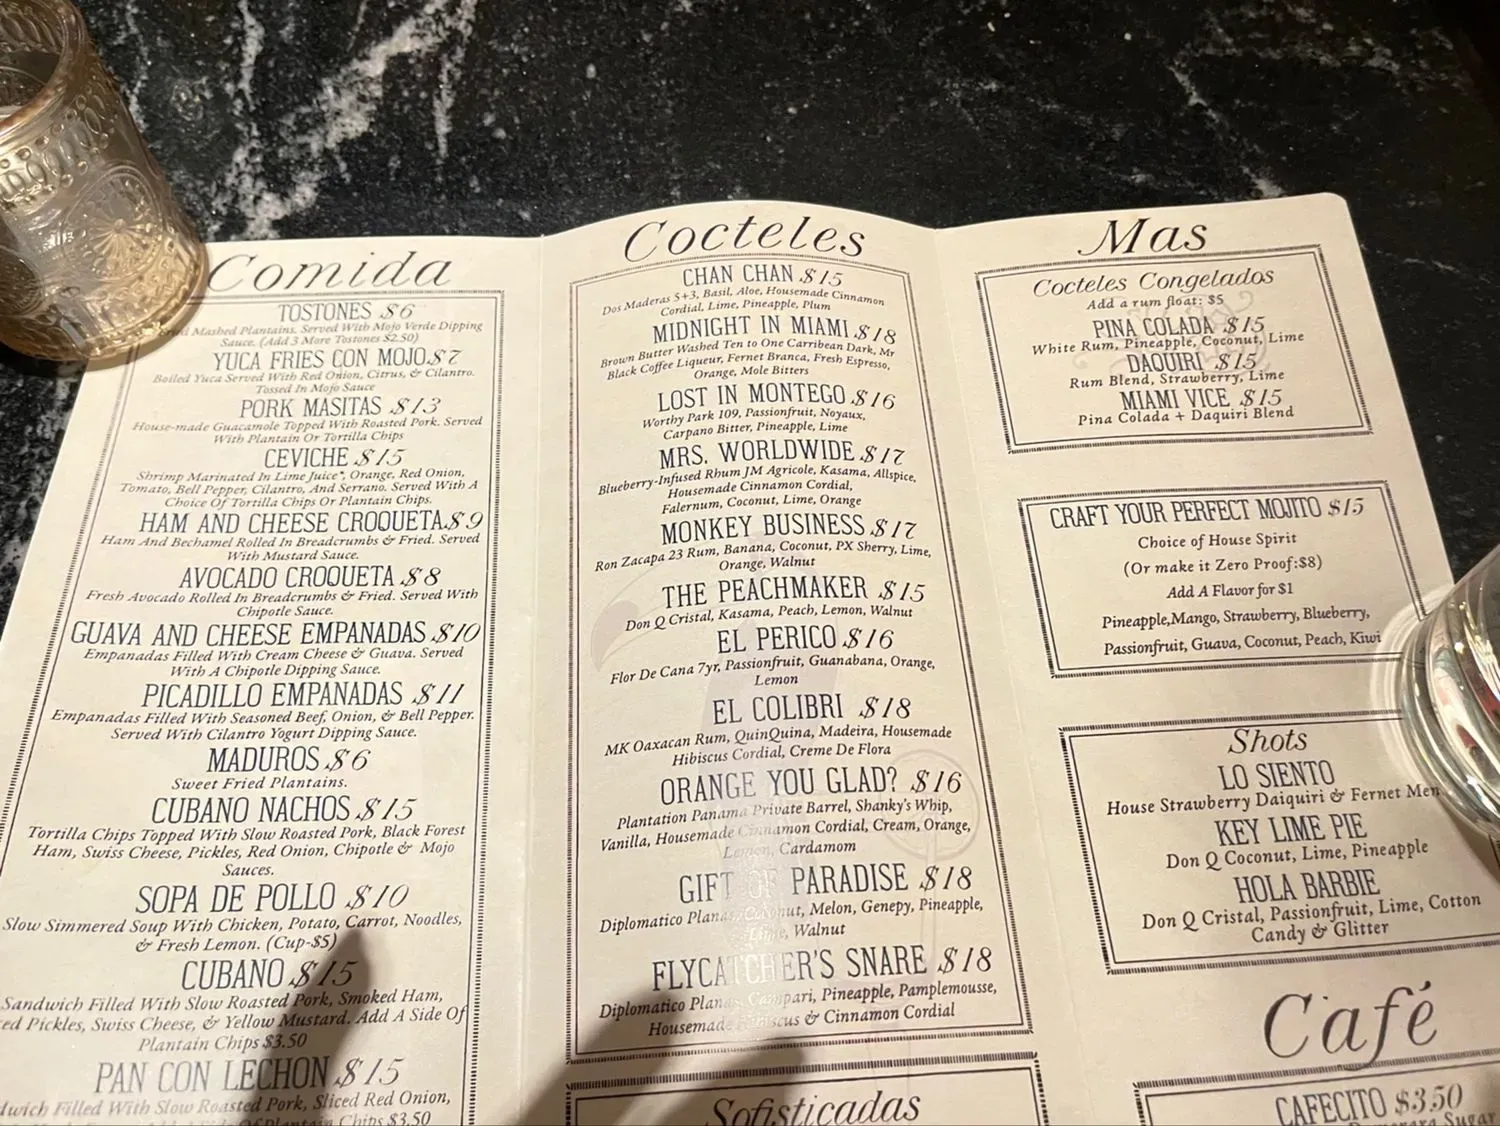 Comida
TOSTONES $6
Mashed Plantains. Served With Mojo Verde Dipping
Sauce. (Add 3 More Tostones $2.50)
YUCA FRIES CON MOJO $7
Boiled Yuca Served With Red Onion, Citrus, & Cilantro.
Tossed In Mojo Sauce
PORK MASITAS $13
House-made Guacamole Topped With Roasted Pork. Served
With Plantain Or Tortilla Chips
CEVICHE $15
Shrimp Marinated In Lime Juice*, Orange, Red Onion,
Tomato, Bell Pepper, Cilantro, And Serrano. Served With A
Choice Of Tortilla Chips Or Plantain Chips.
HAM AND CHEESE CROQUETA $9
Ham And Bechamel Rolled In Breadcrumbs & Fried. Served
With Mustard Sauce.
AVOCADO CROQUETA $8
Fresh Avocado Rolled In Breadcrumbs & Fried. Served With
Chipotle Sauce.
GUAVA AND CHEESE EMPANADAS $10
Empanadas Filled With Cream Cheese & Guava. Served
With A Chipotle Dipping Sauce.
PICADILLO EMPANADAS $11
Empanadas Filled With Seasoned Beef, Onion, & Bell Pepper.
Served With Cilantro Yogurt Dipping Sauce.
MADUROS $6
Sweet Fried Plantains.
CUBANO NACHOS $15
Tortilla Chips Topped With Slow Roasted Pork, Black Forest
Ham, Swiss Cheese, Pickles, Red Onion, Chipotle & Mojo
Sauces.
SOPA DE POLLO $10
Slow Simmered Soup With Chicken, Potato, Carrot, Noodles,
& Fresh Lemon. (Cup-$5)
CUBANO $15
Sandwich Filled With Slow Roasted Pork, Smoked Ham,
Pickles, Swiss Cheese, & Yellow Mustard. Add A Side Of
Plantain Chips $3.50
PAN CON LECHON $15
Filled With Slow Roasted Pork, Sliced Red Onion,
Plantain Chips $3.50
Cocteles
CHAN CHAN $15
Dos Maderas 5+3, Basil, Aloe, Housemade Cinnamon
Cordial, Lime, Pineapple, Plum
MIDNIGHT IN MIAMI $18
Brown Butter Washed Ten to One Carribean Dark, Mr
Black Coffee Liqueur, Fernet Branca, Fresh Espresso,
Orange, Mole Bitters
LOST IN MONTEGO $16
Worthy Park 109, Passionfruit, Noyaux,
Carpano Bitter, Pineapple, Lime
MRS. WORLDWIDE $17
Blueberry-Infused Rhum JM Agricole, Kasama, Allspice,
Housemade Cinnamon Cordial,
Falernum, Coconut, Lime, Orange
MONKEY BUSINESS $17
Ron Zacapa 23 Rum, Banana, Coconut, PX Sherry, Lime,
Orange, Walnut
THE PEACHMAKER $15
Don Q Cristal, Kasama, Peach, Lemon, Walnut
EL PERICO $16
Flor De Cana 7yr, Passionfruit, Guanabana, Orange,
Lemon
EL COLIBRI $18
MK Oaxacan Rum, QuinQuina, Madeira, Housemade
Hibiscus Cordial, Creme De Flora
ORANGE YOU GLAD? $16
Plantation Panama Private Barrel, Shanky's Whip,
Vanilla, Housemade Cinnamon Cordial, Cream, Orange,
Lemon, Cardamom
GIFT OF PARADISE $18
Diplomatico Planas, Coconut, Melon, Genepy, Pineapple,
Lime, Walnut
FLYCATCHER'S SNARE $18
Diplomatico Planas, Campari, Pineapple, Pamplemousse,
Housemade Hibiscus & Cinnamon Cordial
Sofisticadas
Mas
Cocteles Congelados
Add a rum float: $5
PINA COLADA $15
White Rum, Pineapple, Coconut, Lime
DAQUIRI $15
Rum Blend, Strawberry, Lime
MIAMI VICE $15
Pina Colada + Daquiri Blend
CRAFT YOUR PERFECT MOJITO $15
Choice of House Spirit
(Or make it Zero Proof:$8)
Add A Flavor for $1
Pineapple,Mango, Strawberry, Blueberry,
Passionfruit, Guava, Coconut, Peach, Kiwi
Shots
LO SIENTO
House Strawberry Daiquiri & Fernet Men
KEY LIME PIE
Don Q Coconut, Lime, Pineapple
HOLA BARBIE
Don Q Cristal, Passionfruit, Lime, Cotton
Candy & Glitter
Café
CAFECITO $3.50
Demerara Sugar